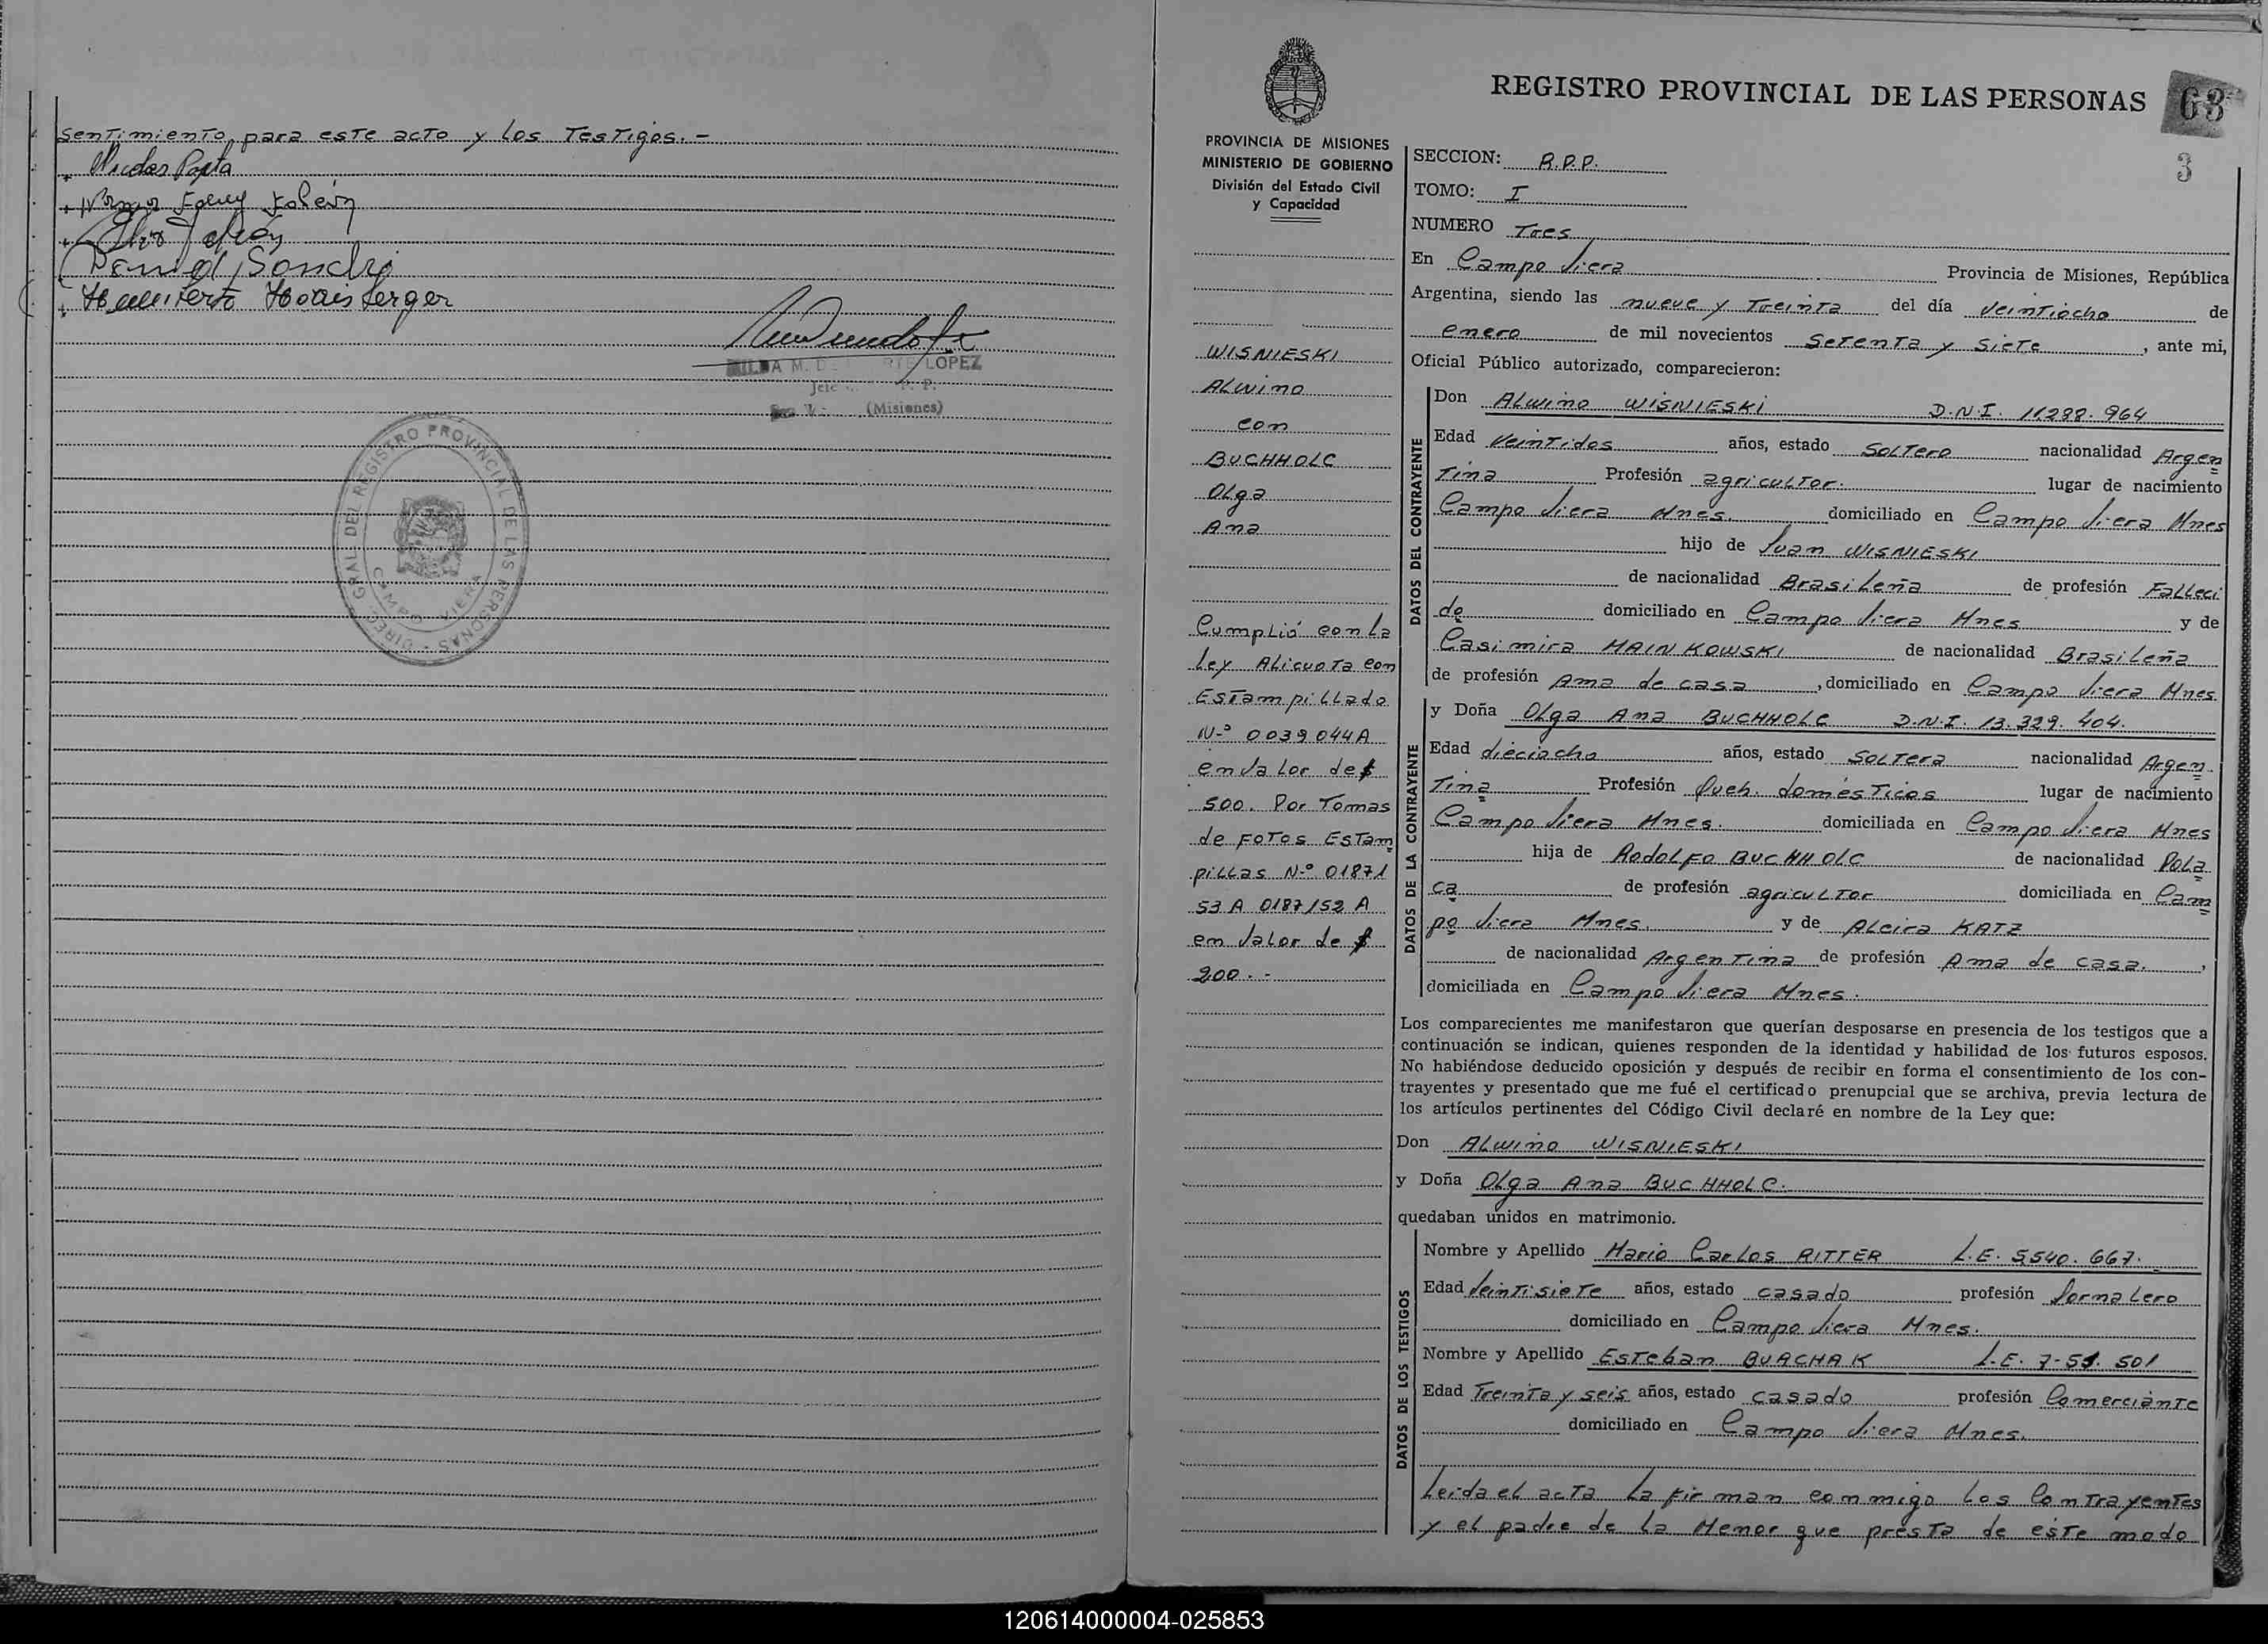 sentimiento para este acto y los Testigos.-
Nicolas
Daniel
HILDA M. D LOPEZ
Jefe P. P.
(Misiones)
DIREC. GRAL. DEL REGISTRO PROVINCIAL DE LAS PERSONAS -
CAMPO VIERA
REGISTRO PROVINCIAL DE LAS PERSONAS 63
3
PROVINCIA DE MISIONES
MINISTERIO DE GOBIERNO
División del Estado Civil
y Capacidad
WISNIESKI
ALwino
con
BUCHHOLC
Olga
Ana
Cumplió con la
Ley Alicuota con
Estampillado
N-º 0039044A
en Valor de $
500. Por Tomas
de FOTOS Estam
pillas N-º 01871
53 A 0187152 A
en Valor de $
200.-
SECCION: R.P.P.
TOMO: I
NUMERO Tres
En Campo Viera Provincia de Misiones, República
Argentina, siendo las nueve y Treinta del día Veintiocho de
enero de mil novecientos Setenta y Siete, ante mi,
Oficial Público autorizado, comparecieron:
DATOS DEL CONTRAYENTE
Don ALwino WISNIESKI D.N.I. 11.288.964
Edad Veintidos años, estado SOLTERO nacionalidad Argen
Tina Profesión agricultor. lugar de nacimiento
Campo Viera Mnes. domiciliado en Campo Viera Mnes
hijo de Juan WISNIESKI
de nacionalidad Brasileña de profesión Falleci
do domiciliado en Campo Viera Mnes y de
Casimira MAINKOWSKI de nacionalidad Brasileña
de profesión Ama de casa, domiciliado en Campo Viera Mnes.
DATOS DE LA CONTRAYENTE
y Doña Olga Ana BUCHHOLC D.N.I. 13.329.404.
Edad dieciocho años, estado SOLTERA nacionalidad Argen
Tina Profesión Queh. domésticos lugar de nacimiento
Campo Viera Mnes. domiciliada en Campo Viera Mnes
hija de Rodolfo BUCHHOLC de nacionalidad Pola
ca de profesión agricultor domiciliada en Cam
po Viera Mnes. y de Alcira KATZ
de nacionalidad Argentina de profesión Ama de casa.,
domiciliada en Campo Viera Mnes.
Los comparecientes me manifestaron que querían desposarse en presencia de los testigos que a
continuación se indican, quienes responden de la identidad y habilidad de los futuros esposos.
No habiéndose deducido oposición y después de recibir en forma el consentimiento de los con-
trayentes y presentado que me fué el certificado prenupcial que se archiva, previa lectura de
los artículos pertinentes del Código Civil declaré en nombre de la Ley que:
Don ALwino WISNIESKI
y Doña Olga Ana BUCHHOLC.
quedaban unidos en matrimonio.
DATOS DE LOS TESTIGOS
Nombre y Apellido Mario Carlos RITTER L.E. 5.540.667.
Edad Veintisiete años, estado casado profesión Jornalero
domiciliado en Campo Viera Mnes.
Nombre y Apellido Esteban BUACHAK L.E. 501
Edad Treinta y seis años, estado casado profesión Comerciante
domiciliado en Campo Viera Mnes.
Leida el acta La firman conmigo los Contrayentes
y el padre de la Menor que presta de este modo
120614000004-025853